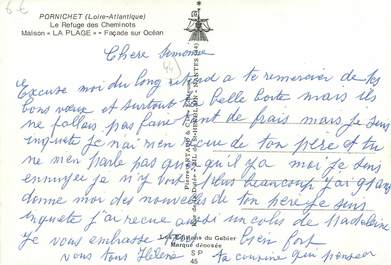 6 €
PORNICHET (Loire-Atlantique)
Le Refuge des Cheminots
Maison « LA PLAGE » - Façade sur Océan
Chère Simonne
Excuse moi du long retard a te remercier de tes
bons vœux et surtout la belle boite mais ils
ne fallais pas faire tant de frais mais je suis
inquete je nai rien recue de ton père et tu
ne men parle pas quoi quil ya moi je suis
ennuyer je ni vois plus beaucoup j'ai 91 ans
donne moi des nouvelles de ton père je suis
inquete j'ai recue aussi un colis de Madeleine
Je vous embrasse bien fort
Editions du Gabier
Marque déposée
vous tous Hélène ta cousine qui pense
SP
45